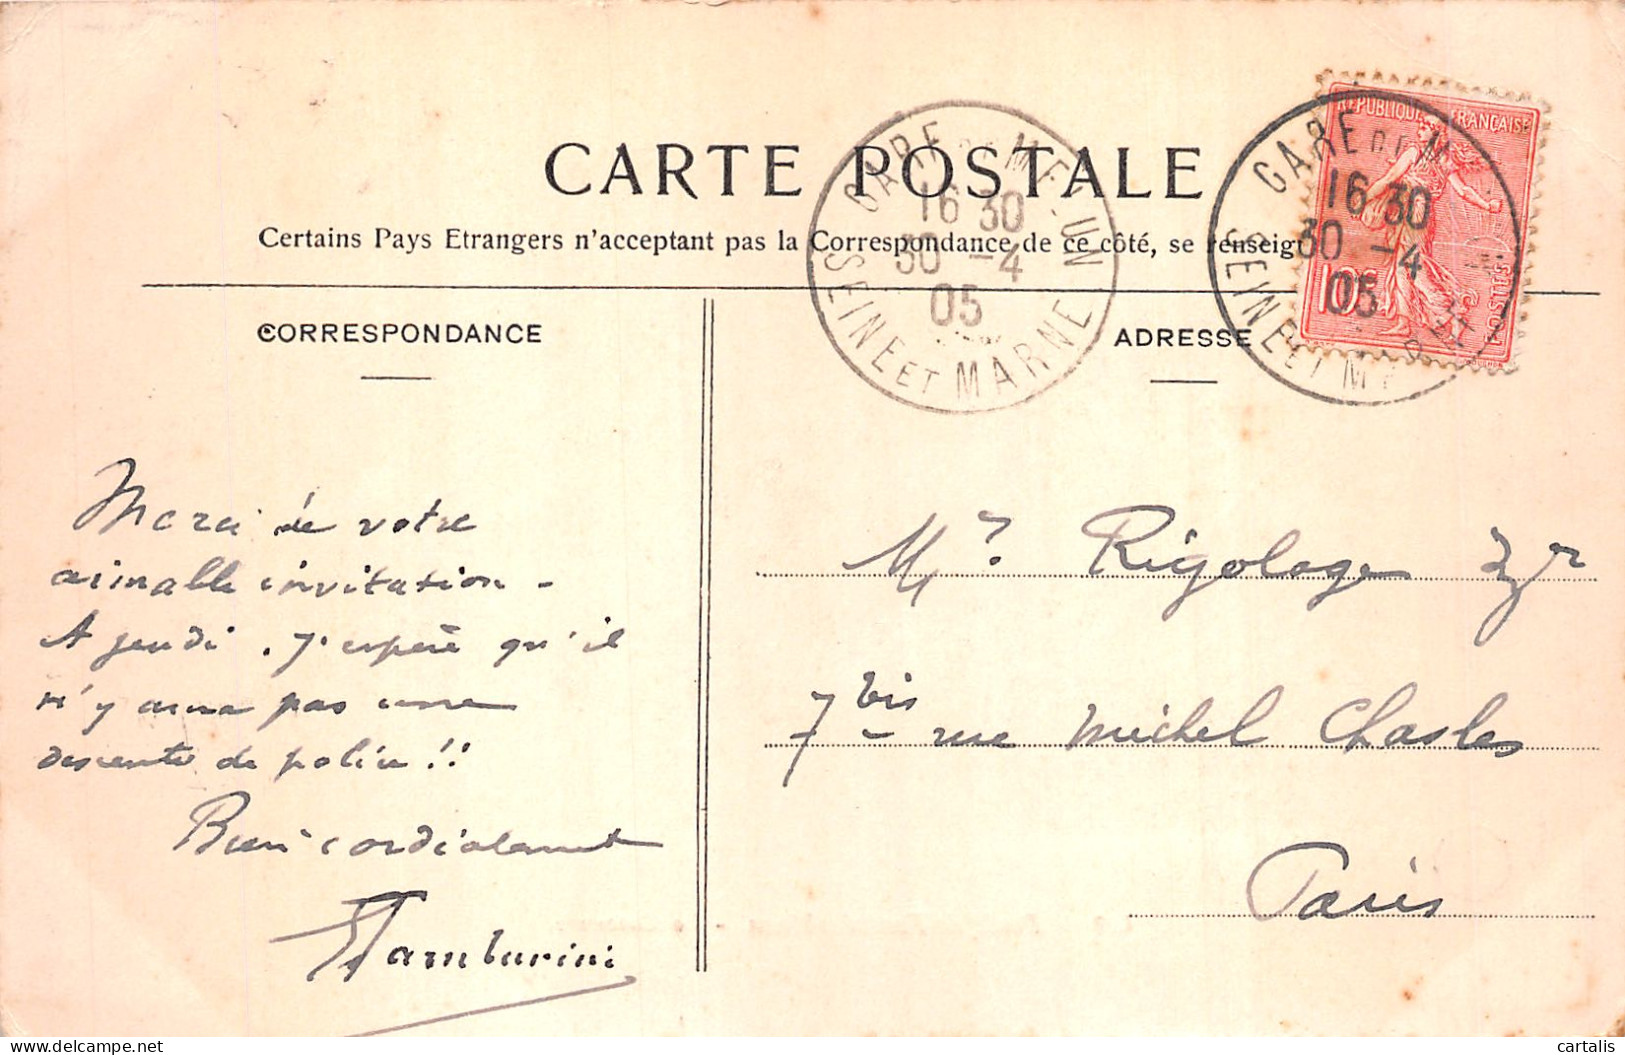 CARTE POSTALE
Certains Pays Etrangers n'acceptant pas la Correspondance de ce côté, se renseign
CORRESPONDANCE
Merci de votre
aimable invitation -
A jeudi . J'espère qu'il
n'y aura pas une
descente de police !!
Bien cordialement
Tamburini
GARE DE MELUN
16 30
30 -4
05
SEINE ET MARNE
ADRESSE
RÉPUBLIQUE FRANÇAISE
POSTES
10c
GARE DE M
16 30
30 -4
05
SEINE ET MA
Mr Rigolage
7 bis rue Michel Chasles
Paris
delcampe.net
cartalis